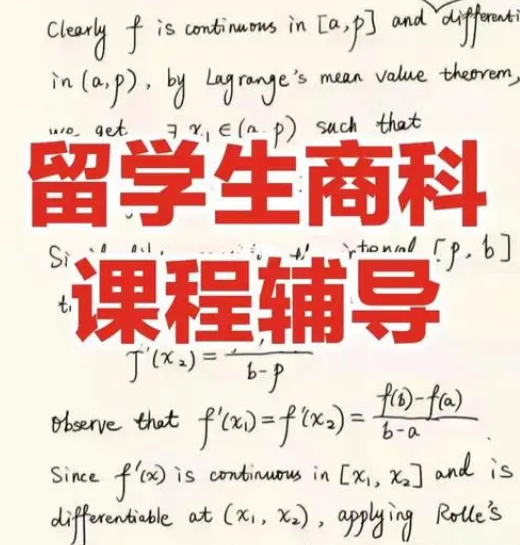 Clearly f is continuous in [a,p] and differenti
in (a,p), by Lagrange's mean value theorem,
we get ∃ x₁ ∈ (a,p) such that
留学生商科
[p, b]
课程辅导
f'(x₂) =
b-p
Observe that f'(x₁) = f'(x₂) = f(b)-f(a)
b-a
Since f'(x) is continuous in [x₁, x₂] and is
differentiable at (x₁, x₂), applying Rolle's